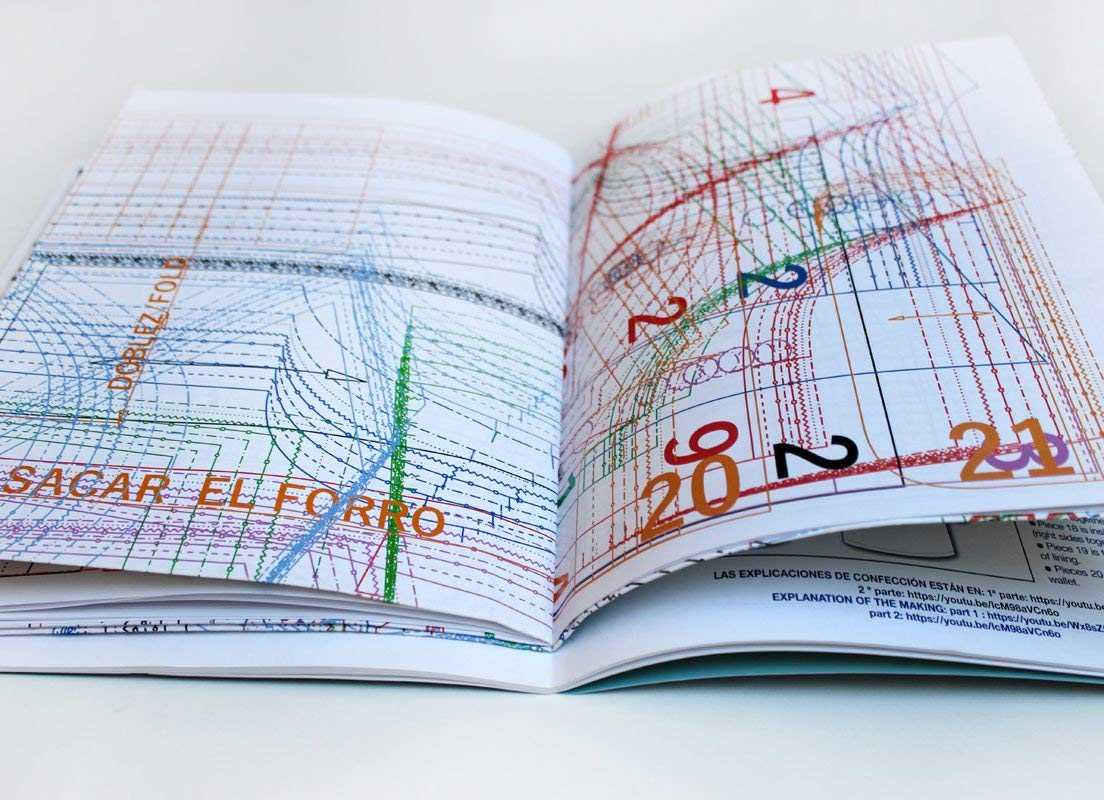 DOBLEZ/FOLD
SACAR EL FORRO
4
2
2
9
2
20
21
8
Piece 18 is
(right sides
Piece 19 is
of lining.
Pieces 20
wallet.
LAS EXPLICACIONES DE CONFECCIÓN ESTÁN EN: 1ª parte: https://youtu.be
2ª parte: https://youtu.be/lcM98aVCn6o
EXPLANATION OF THE MAKING: part 1 : https://youtu.be/Wx8sZ
part 2: https://youtu.be/lcM98aVCn6o